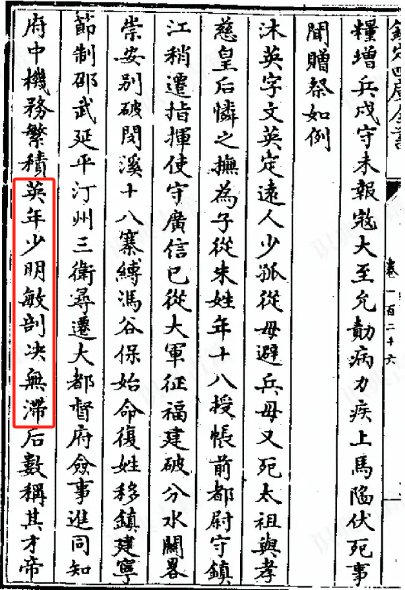 欽定四庫全書
卷一百二十六
糧增兵戍守未報寇大至允勣病力疾上馬陷伏死事
聞贈祭如例
沐英字文英定遠人少孤從母避兵母又死太祖與孝
慈皇后憐之撫為子從朱姓年十八授帳前都尉守鎮
江稍遷指揮使守廣信已從大軍征福建破分水關畧
崇安别破閔溪十八寨縛馮谷保始命復姓移鎮建寧
節制邵武延平汀州三衛尋遷大都督府僉事進同知
府中機務繁積英年少明敏剖決無滯后數稱其才帝